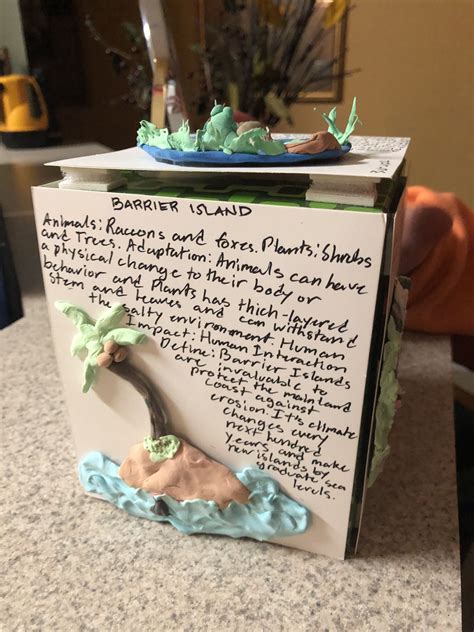 BARRIER ISLAND
Animals: Racoons and foxes. Plants: Shrubs
and Trees. Adaptation: Animals can have
a physical change to their body or
behavior and Plants has thich-layered
stem and leaves and can withstand
the salty environment. Human
Impact: Human Interaction
Define: Barrier Islands
are invaluable to
protect the mainland
coast against
erosion. It's climate
changes every
next hundred
years, and make
new islands by
graduate sea
levels.